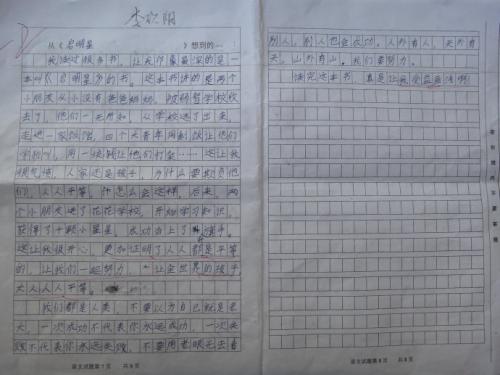 李欣阳
从《启明星》想到的…
我读过很多书，让我印象最深的是一
本叫《启明星》的书。这本书讲的是两个
小朋友从小没有爸爸妈妈，被师哲学校校
去了，他们一无所知，从学校逃了出来，
走进一家饭馆，四个大青年用剩饭让他们
用一块钱让他们打架……这让我
很气愤，人家还是孩子，为什么要欺负他
们，人人平等。什怎么会这样，后来，两
个小朋友进了花花学校，开始学习知识。
获得了十颗小星星，成功当上了
这让我很开心。更加证明了人人都是平等
的，让我们一起努力，让全世界的孩子，
大人人人平等。
我们都是人类，不要以为自己就是老
大，一次成功不代表你永远成功，一次失
败不代表你永远失败，不要用老眼光去看
语文试题第7页 共8页
别人，别人也会成功。人外有人，天外有
天，山外有山。我们要努力。
读完这本书，真是让我受益匪浅啊！
语文试题第8页 共8页